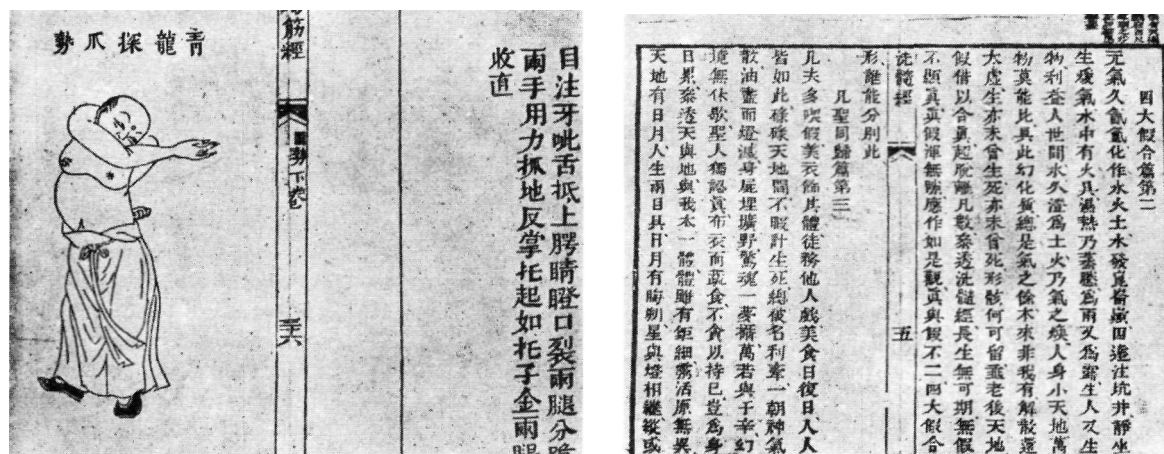 目注牙呲舌抵上腭睛瞪口裂兩腿分跪
兩手用力抓地反掌托起如托子金兩腿
收直
筋經
圖勢下卷
三六
青龍探爪勢
四大假合篇第二
元氣久氤氳化作水火土水發崑崙巔四達注坑井靜坐
生暖氣水中有火具濕熱乃蒸騰爲雨又爲露生人又生
物利益人世間水久澄爲土火乃氣之煥人身小天地萬
物莫能比具此幻化質總是氣之餘本來非我有解散還
太虛生亦未曾生死亦未曾死形骸何可留垂老後天地
假借以合眞超脫離凡數參透洗髓經長生無可期無假
不顯眞眞假渾無際應作如是觀眞與假不二四大假合
洗髓經
五
形誰能分別此
凡聖同歸篇第三
凡夫多喫假美衣飾其體徒務他人戲美食日復日人人
皆如此碌碌天地間不暇計生死總被名利牽一朝神氣
散油盡而燈滅身屍埋壙野驚魂一夢攝萬苦與千辛幻
境無休歇聖人獨認眞布衣而蔬食不貪以持己豈爲身
口累參透天與地與我本一體體雖有鉅細靈活原無異
天地有日月人生兩目具日月有晦朔星與燈相繼縱或